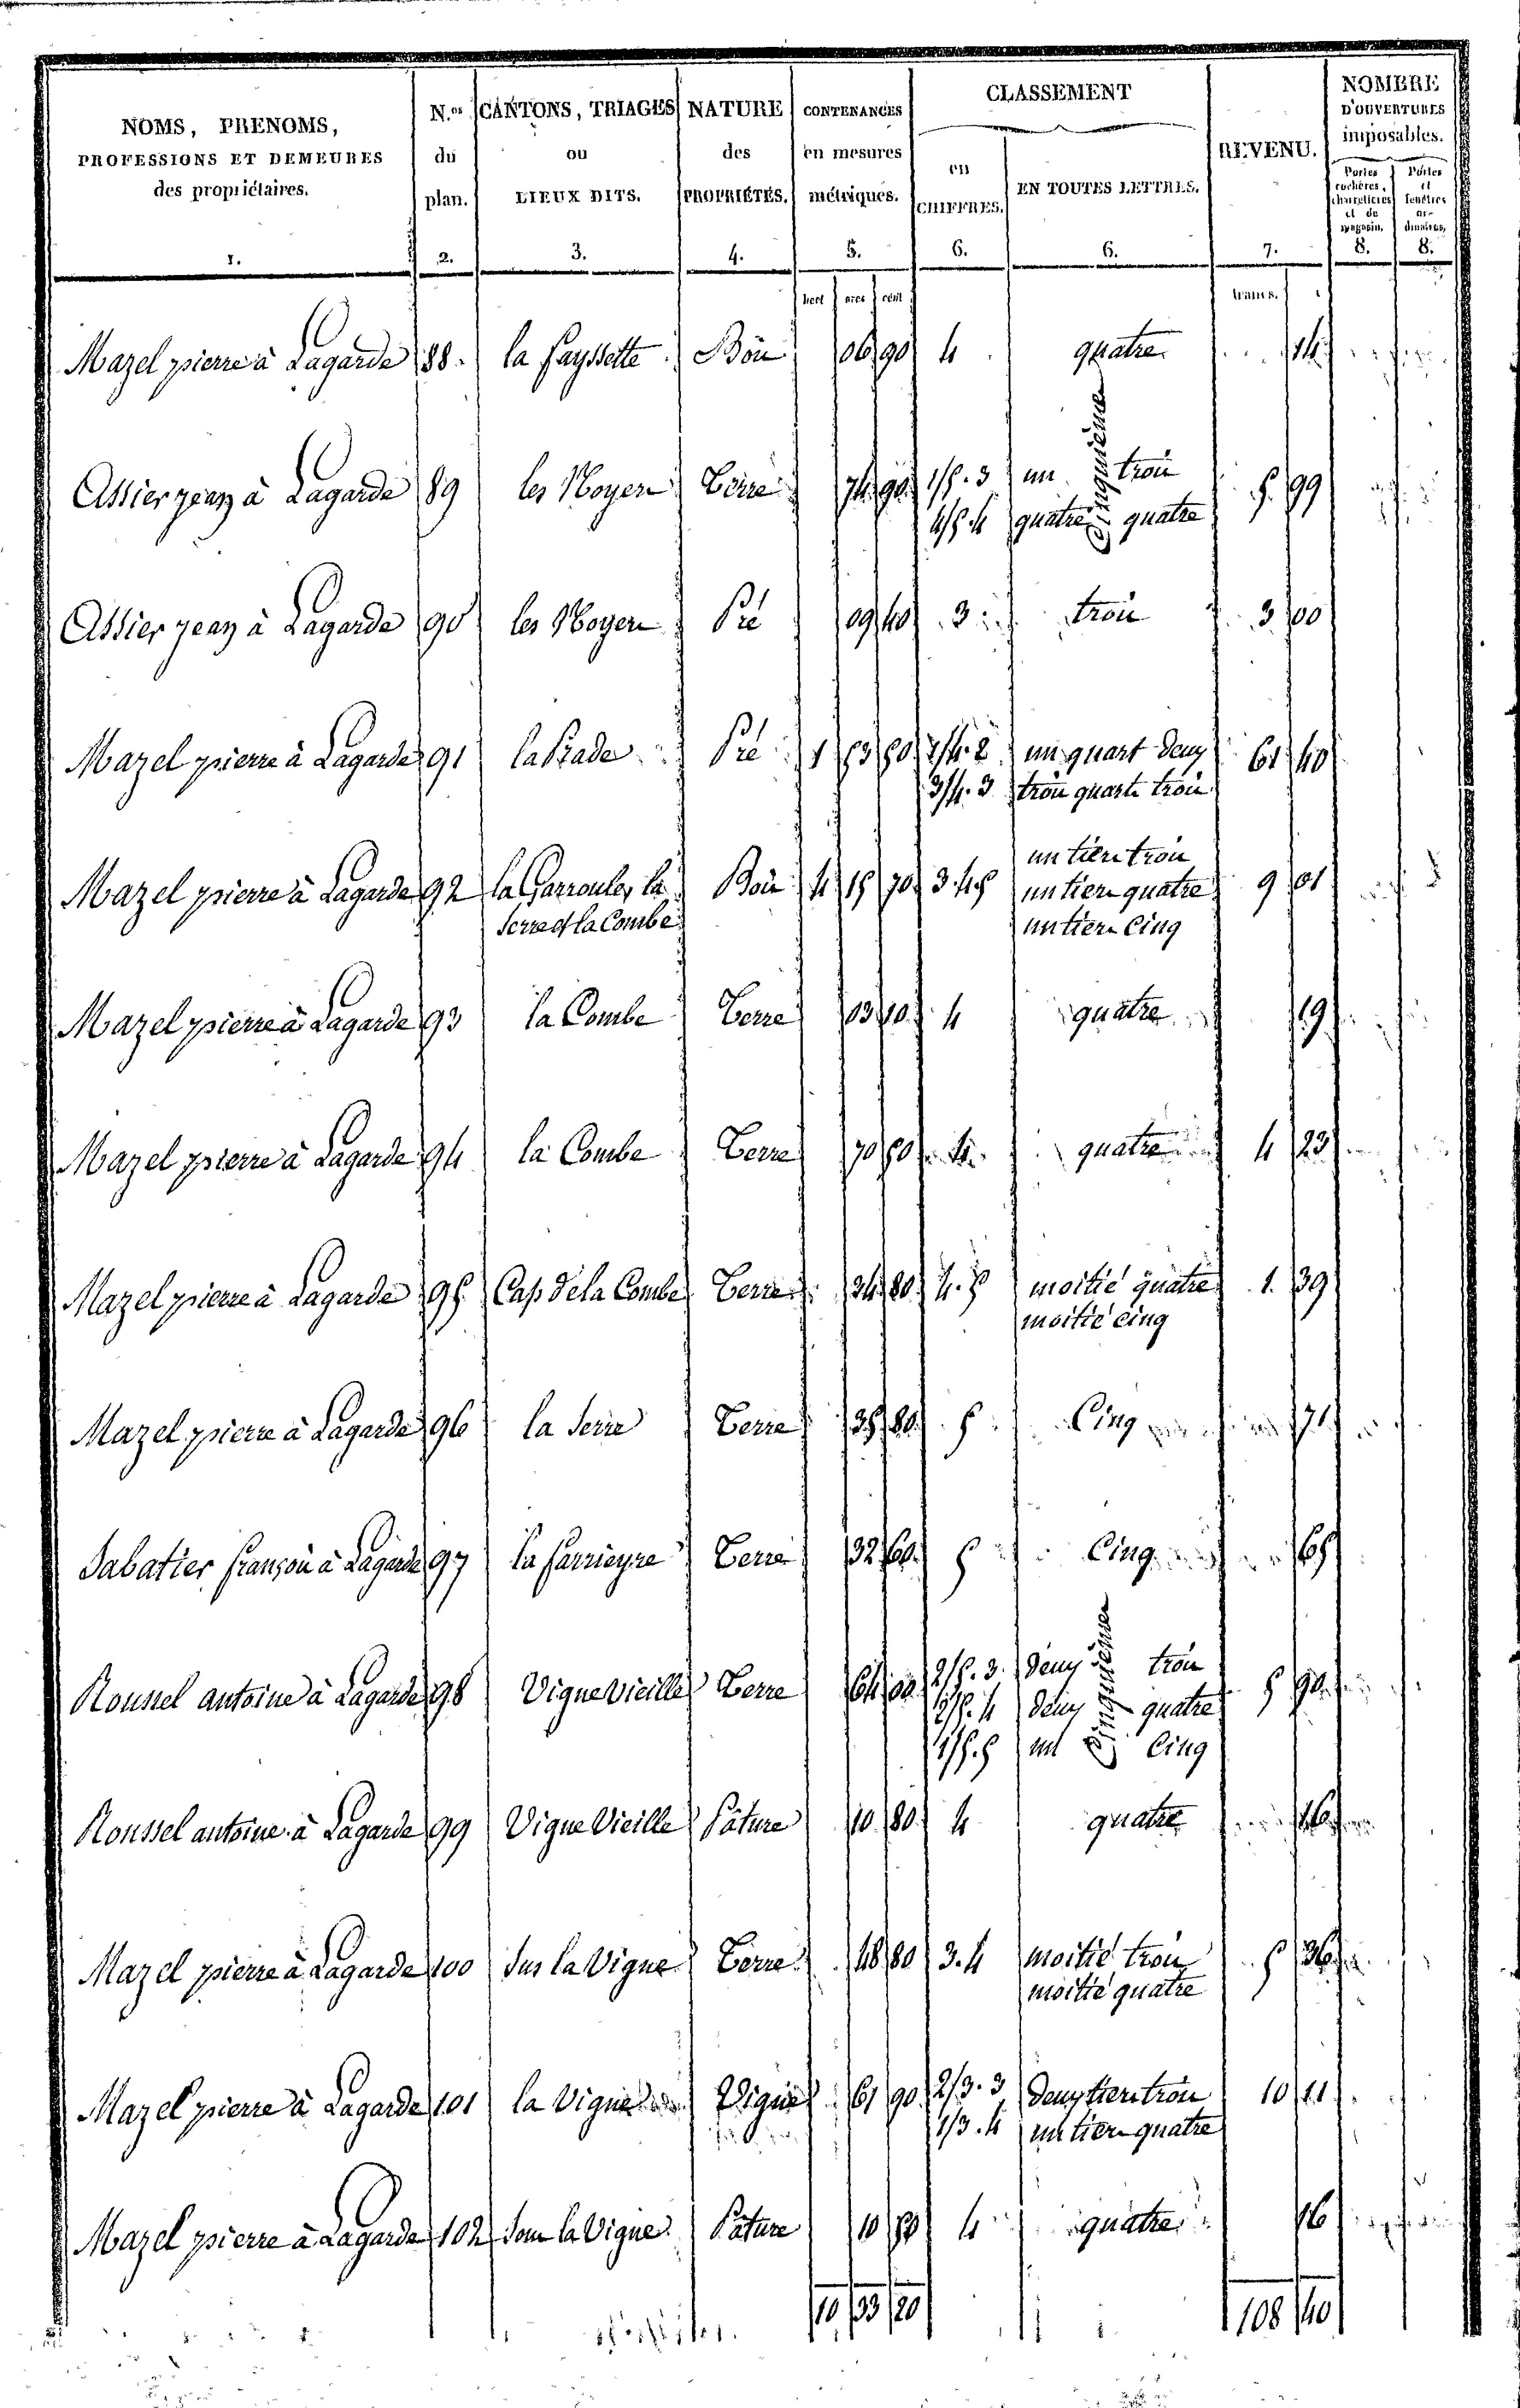 NOMS, PRENOMS, PROFESSIONS ET DEMEURES des propriétaires. 1.
N.os du plan. 2.
CANTONS, TRIAGES ou LIEUX DITS. 3.
NATURE des PROPRIÉTÉS. 4.
CONTENANCES en mesures métriques. 5.
CLASSEMENT
en CHIFFRES. 6.
EN TOUTES LETTRES. 6.
REVENU. 7.
NOMBRE D'OUVERTURES imposables.
Portes cochères, charretières et de magasin. 8.
Portes et fenêtres ordinaires. 8.
hect ares cent francs.
Mazel pierre à Lagarde 88. la fayssette Bois 06 90 4 quatre 14
Assier jean à Lagarde 89 les Noyers Terre 74 90 1/5. 3 un cinquième trois 5. 99
4/5 4 quatre quatre
Assier jean à Lagarde 90 les Noyers Pré 09 40 3 trois 3 00
Mazel pierre à Lagarde 91 la Prade Pré 1 1/4. 2 un quart deux 61 40
3/4. 3 trois quarts trois
Mazel pierre à Lagarde 92 la Garroule, la Bois 4 15 70 3 4 5 un tiers trois
un tiers quatre 9 01
Serre et la Combe un tiers Cinq
Mazel pierre à Lagarde 93 la Combe Terre 03 10 4 quatre 19
Mazel pierre à Lagarde 94 la Combe Terre 70 50 4 quatre 4 23
Mazel pierre à Lagarde 95 Cap de la Combe Terre 34 80 4. 5 moitié quatre 1. 39
moitié cinq
Mazel pierre à Lagarde 96 la Serre Terre 35 80 5 Cinq 71
Sabatier françois à Lagarde 97 la farrieyre Terre 32 60 5 Cinq 65
Roussel antoine à Lagarde 98 Vigne Vieille Terre 64 00 2/5. 3. deux cinquièmes trois 5 90
2/5. 4 deux quatre
1/5. 5 un Cinq
Roussel antoine à Lagarde 99 Vigne Vieille Pâture 10 80 4 quatre 16
Mazel pierre à Lagarde 100 Sur la Vigne Terre 48 80 3. 4 moitié trois 5 36
moitié quatre
Mazel pierre à Lagarde 101 la Vigne Vigne 61 90 2/3. 3 deux tiers trois 10 11
1/3. 4 un tiers quatre
Mazel pierre à Lagarde 102 Sous la Vigne Pâture 10 50 4 quatre 16
10 33 20 108 40